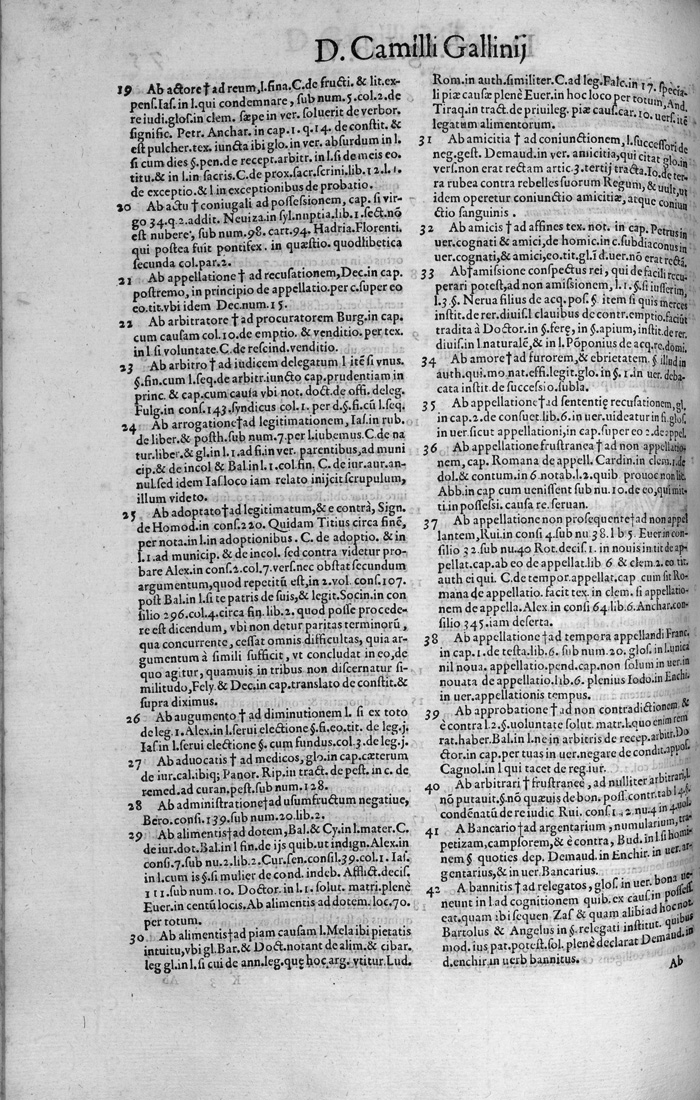 D. Camilli Gallinij
19 Ab actore † ad reum, l. fina. C. de fructi. & lit. ex-
pens. Ias. in l. qui condemnare, sub num. 5. col. 2. de
re iudi. glos. in clem. sæpe in ver. soluerit de verbor.
signific. Petr. Anchar. in cap. 1. q. 14. de constit. &
est pulcher. tex. iuncta ibi glo. in ver. absurdum in l.
si cum dies §. pen. de recept. arbitr. in l. si de meis eo.
titu. & in l. in sacris. C. de prox. sacr. scrini. lib. 12. l. 1.
de exceptio. & l in exceptionibus de probatio.
20 Ab actu † coniugali ad possessionem, cap. si vir-
go 34. q. 2. addit. Neuiza in syl. nuptia. lib. 1. sect. nõ
est nubere, sub num. 98. cart. 94. Hadria. Florenti.
qui postea fuit pontifex. in quæstio. quodlibetica
secunda col. par. 2.
21 Ab appellatione † ad recusationem, Dec. in cap.
postremo, in principio de appellatio. per c. super eo
eo. tit. vbi idem Dec. num. 15.
22 Ab arbitratore † ad procuratorem Burg. in cap.
cum causam col. 10. de emptio. & venditio. per tex.
in l si voluntate. C. de rescind. venditio.
23 Ab arbitro † ad iudicem delegatum l itẽ si vnus.
§. fin. cum l. seq. de arbitr. iuncto cap. prudentiam in
princ. & cap. cum causa vbi not. doct. de offi. deleg.
Fulg. in cons. 143. syndicus col. 1. per d. §. fi. cũ l. seq.
24 Ab arrogatione † ad legitimationem, Ias. in rub.
de liber. & posth. sub num. 7. per l. iubemus. C. de na
tur. liber. & gl. in l. 1. ad fi. in ver. parentibus, ad muni
cip. & de incol & Bal. in l. 1. col. fin. C. de iur. aur. an-
nul. sed idem Ias. loco iam relato inijcit scrupulum,
illum videto.
25 Ab adoptato † ad legitimatum, & e contrà, Sign.
de Homod. in cons. 220. Quidam Titius circa finẽ,
per nota. in l. in adoptionibus. C. de adoptio. & in
l. 1. ad municip. & de incol. sed contra videtur pro-
bare Alex. in cons. 2. col. 7. vers. nec obstat secundum
argumentum, quod repetitũ est, in 2. vol. cons. 107.
post Bal. in l. si te patris de suis, & legit. Socin. in con
silio 296. col. 4. circa fin. lib. 2. quod posse procede-
re est dicendum, vbi non detur paritas terminorũ,
qua concurrente, cessat omnis difficultas, quia ar-
gumentum à simili sufficit, vt concludat in eo, de
quo agitur, quamuis in tribus non discernatur si-
militudo, Fely. & Dec. in cap. translato de constit. &
supra diximus.
26 Ab augumento † ad diminutionem l. si ex toto
de leg. 1. Alex. in l. serui electione §. si. eo. tit. de leg. j.
Ias in l. serui electione §. cum fundus. col. 3. de leg. j.
27 Ab aduocatis † ad medicos, glo. in cap. cæterum
de iur. cal. ibiq; Panor. Rip. in tract. de pest. in c. de
remed. ad curan. pest. sub num. 128.
28 Ab administratione † ad usumfructum negatiue,
Bero. consi. 139. sub num. 20. lib. 2.
29 Ab alimentis † ad dotem, Bal. & Cy. in l. mater. C.
de iur. dot. Bal in l fin. de ijs quib. ut indign. Alex. in
consi. 7. sub nu. 2. lib. 2. Cur. sen. consil. 39. col. 1. Ias.
in l. cum is §. si mulier de cond. indeb. Afflict. decis.
111. sub num. 10. Doctor. in l. 1. solut. matri. plenè
Euer. in centũ locis. Ab alimentis ad dotem. loc. 70.
per totum.
30 Ab alimentis † ad piam causam l. Mela ibi pietatis
intuitu, vbi gl. Bar. & Doct. notant de alim. & cibar.
leg gl. in l. si cui de ann. leg. quę hoc arg. vtitur Lud.
Rom. in auth. similiter. C. ad leg. Falc. in 17. specia-
li piæ causæ plenè Euer. in hoc loco per totum, And.
Tiraq. in tract. de priuileg. piæ caus. car. 10. uers. itẽ
legatum alimentorum.
31 Ab amicitia † ad coniunctionem, l. successori de
neg. gest. Demaud. in ver. amicitia, qui citat glo. in
vers. non erat rectam artic. 3. tertij tracta. Io. de ter-
ra rubea contra rebelles suorum Regum, & uult, ut
idem operetur coniunctio amicitiæ, atque coniun
ctio sanguinis.
32 Ab amicis † ad affines tex. not. in cap. Petrus in
uer. cognati & amici, de homic. in c. subdiaconus in
uer. cognati, & amici, eo. tit. gl. ĩ d. uer. nõ erat rectã.
33 Ab † amissione conspectus rei, qui de facili recu-
perari potest, ad non amissionem, l. 1. §. si iusserim,
l. 3 §. Nerua filius de acq. pos. § item si quis merces
instit. de rer. diuis. l clauibus de contr. emptio. faciũt
tradita à Doctor. in §. ferę, in §. apium, instit. de rer.
diuis. in l. naturalẽ, & in l. Põponius de acq. re. domi.
34 Ab amore † ad furorem, & ebrietatem. §. illud in
auth. qui. mo nat. effi. legit. glo. in §. 1. in uer. deba-
cata instit. de successio. subla.
35 Ab appellatione † ad sententię recusationem, gl.
in cap. 2. de consuet. lib. 6. in uer. uideatur in fi. glos.
in uer. sicut appellationi, in cap. super eo 2. de appel.
36 Ab appellatione frustranea † ad non appellatio-
nem, cap. Romana de appell. Cardin. in clem. 1. de
dol. & contum. in 6 notab. l. 2. quib. prouoc non lic.
Abb. in cap cum uenissent sub nu. 10. de eo, qui mit-
ti. in possessi. causa re. seruan.
37 Ab appellatione non prosequente † ad non appel
lantem, Rui. in consi 4. sub nu 38. lib 5. Euer in con-
silio 32. sub nu. 40 Rot. decis. 1. in nouis in tit de ap-
pellat. cap. ab eo de appellat. lib 6 & clem 2. eo. tit.
auth ei qui. C. de tempor. appellat. cap cum sit Ro-
mana de appellatio. facit tex. in clem. si appellatio-
nem de appella. Alex in consi 64. lib. 6. Anchar. con-
silio 345. iam deserta.
38 Ab appellatione † ad tempora appellandi Franc.
in cap. 1. de testa. lib. 6. sub num. 20. glos. in l. unica
nil noua. appellatio. pend. cap. non solum in uer. in
nouata de appellatio. lib. 6. plenius Iodo. in Enchi.
in uer. appellationis tempus.
39 Ab approbatione † ad non contradictionem &
è contra l. 2. §. uoluntate solut. matr. l. quo enim rem
rat. haber. Bal. in l. ne in arbitris de recep. arbitr. Do
ctor. in cap. per tuas in uer. negare de condit. appos.
Cagnol. in l qui tacet de reg. iur.
40 Ab arbitrari † frustraneè, ad nulliter arbitrari, l
nõ putauit. §. nõ quæuis de bon. poss. contr. tab l 4. §.
condẽnatũ de re iudic Rui. cons. 1 2. nu. 4 in 4 uol.
41 A Bancario † ad argentarium, numularium, tra-
petizam, campsorem, & è contra, Bud. in l. si homi-
nem § quoties dep. Demaud. in Enchir. in uer. ar-
gentarius, & in uer. Bancarius.
42 A bannitis † ad relegatos, glos. in uer. bona ue-
neunt in l ad cognitionem quib. ex caus. in possess.
eat. quam ibi sequen Zas & quam alibi ad hoc not.
Bartolus & Angelus in §. relegati institut. quibus
mod. ius. pat. potest. sol. plenè declarat Demaud. in
d. enchir in uerb bannitus.
Ab